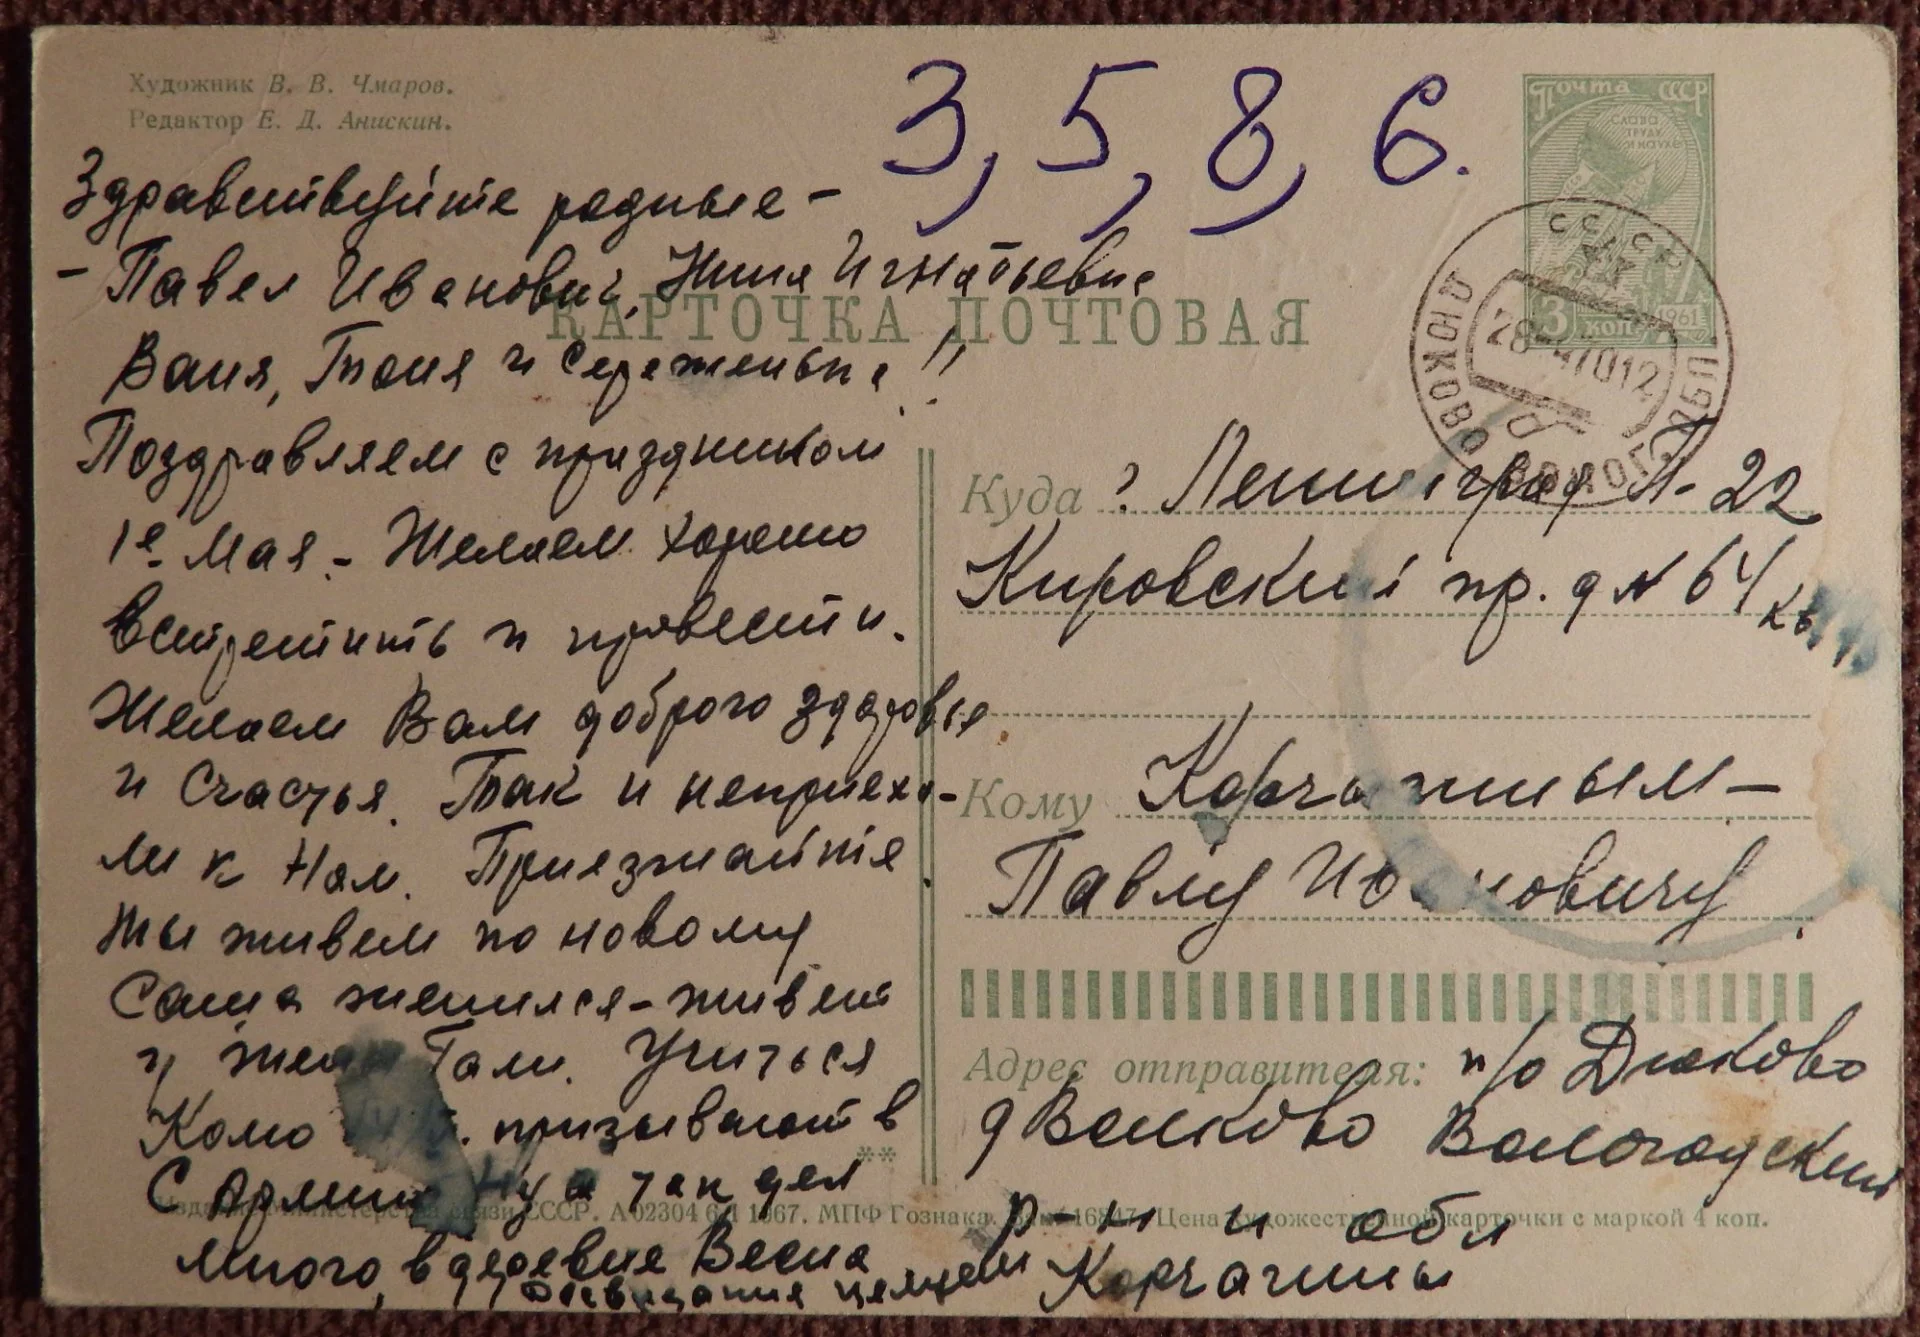 Художник В. В. Чмаров.
Редактор Е. Д. Анискин.
3, 5, 8, 6.
Почта СССР
СЛАВА
ТРУДУ
И НАУКЕ
3 коп 1961
СССР
28-4701 2
ДЮКОВО
ВОЛОГОД
КАРТОЧКА ПОЧТОВАЯ
Здравствуйте родные -
- Павел Иванович, Нина Игнатьевна
Ваня, Тоня и Сереженька!!
Поздравляем с праздником
1е Мая. - Желаем хорошо
встретить и провести.
Желаем Вам доброго здоровья
и счастья. Так и неприеха-
ли к Нам. Приезжайте.
Мы живем по новому
Саша женился - живет
у жены Гали. Учиться
Комо призывают в
С Армию Ну а так дел
много, в деревне Весна
Досвидания целуем
Куда ? Ленинград П-22
Кировский пр. д № 64 кв
Кому Корчагиным -
Павлу Ивановичу
Адрес отправителя: п/о Дюково
д Волково Вологодский
р-н и обл
Корчагины
Издание Министерства связи СССР. А 02304 6/I 1967. МПФ Гознака. Цена художественной карточки с маркой 4 коп.